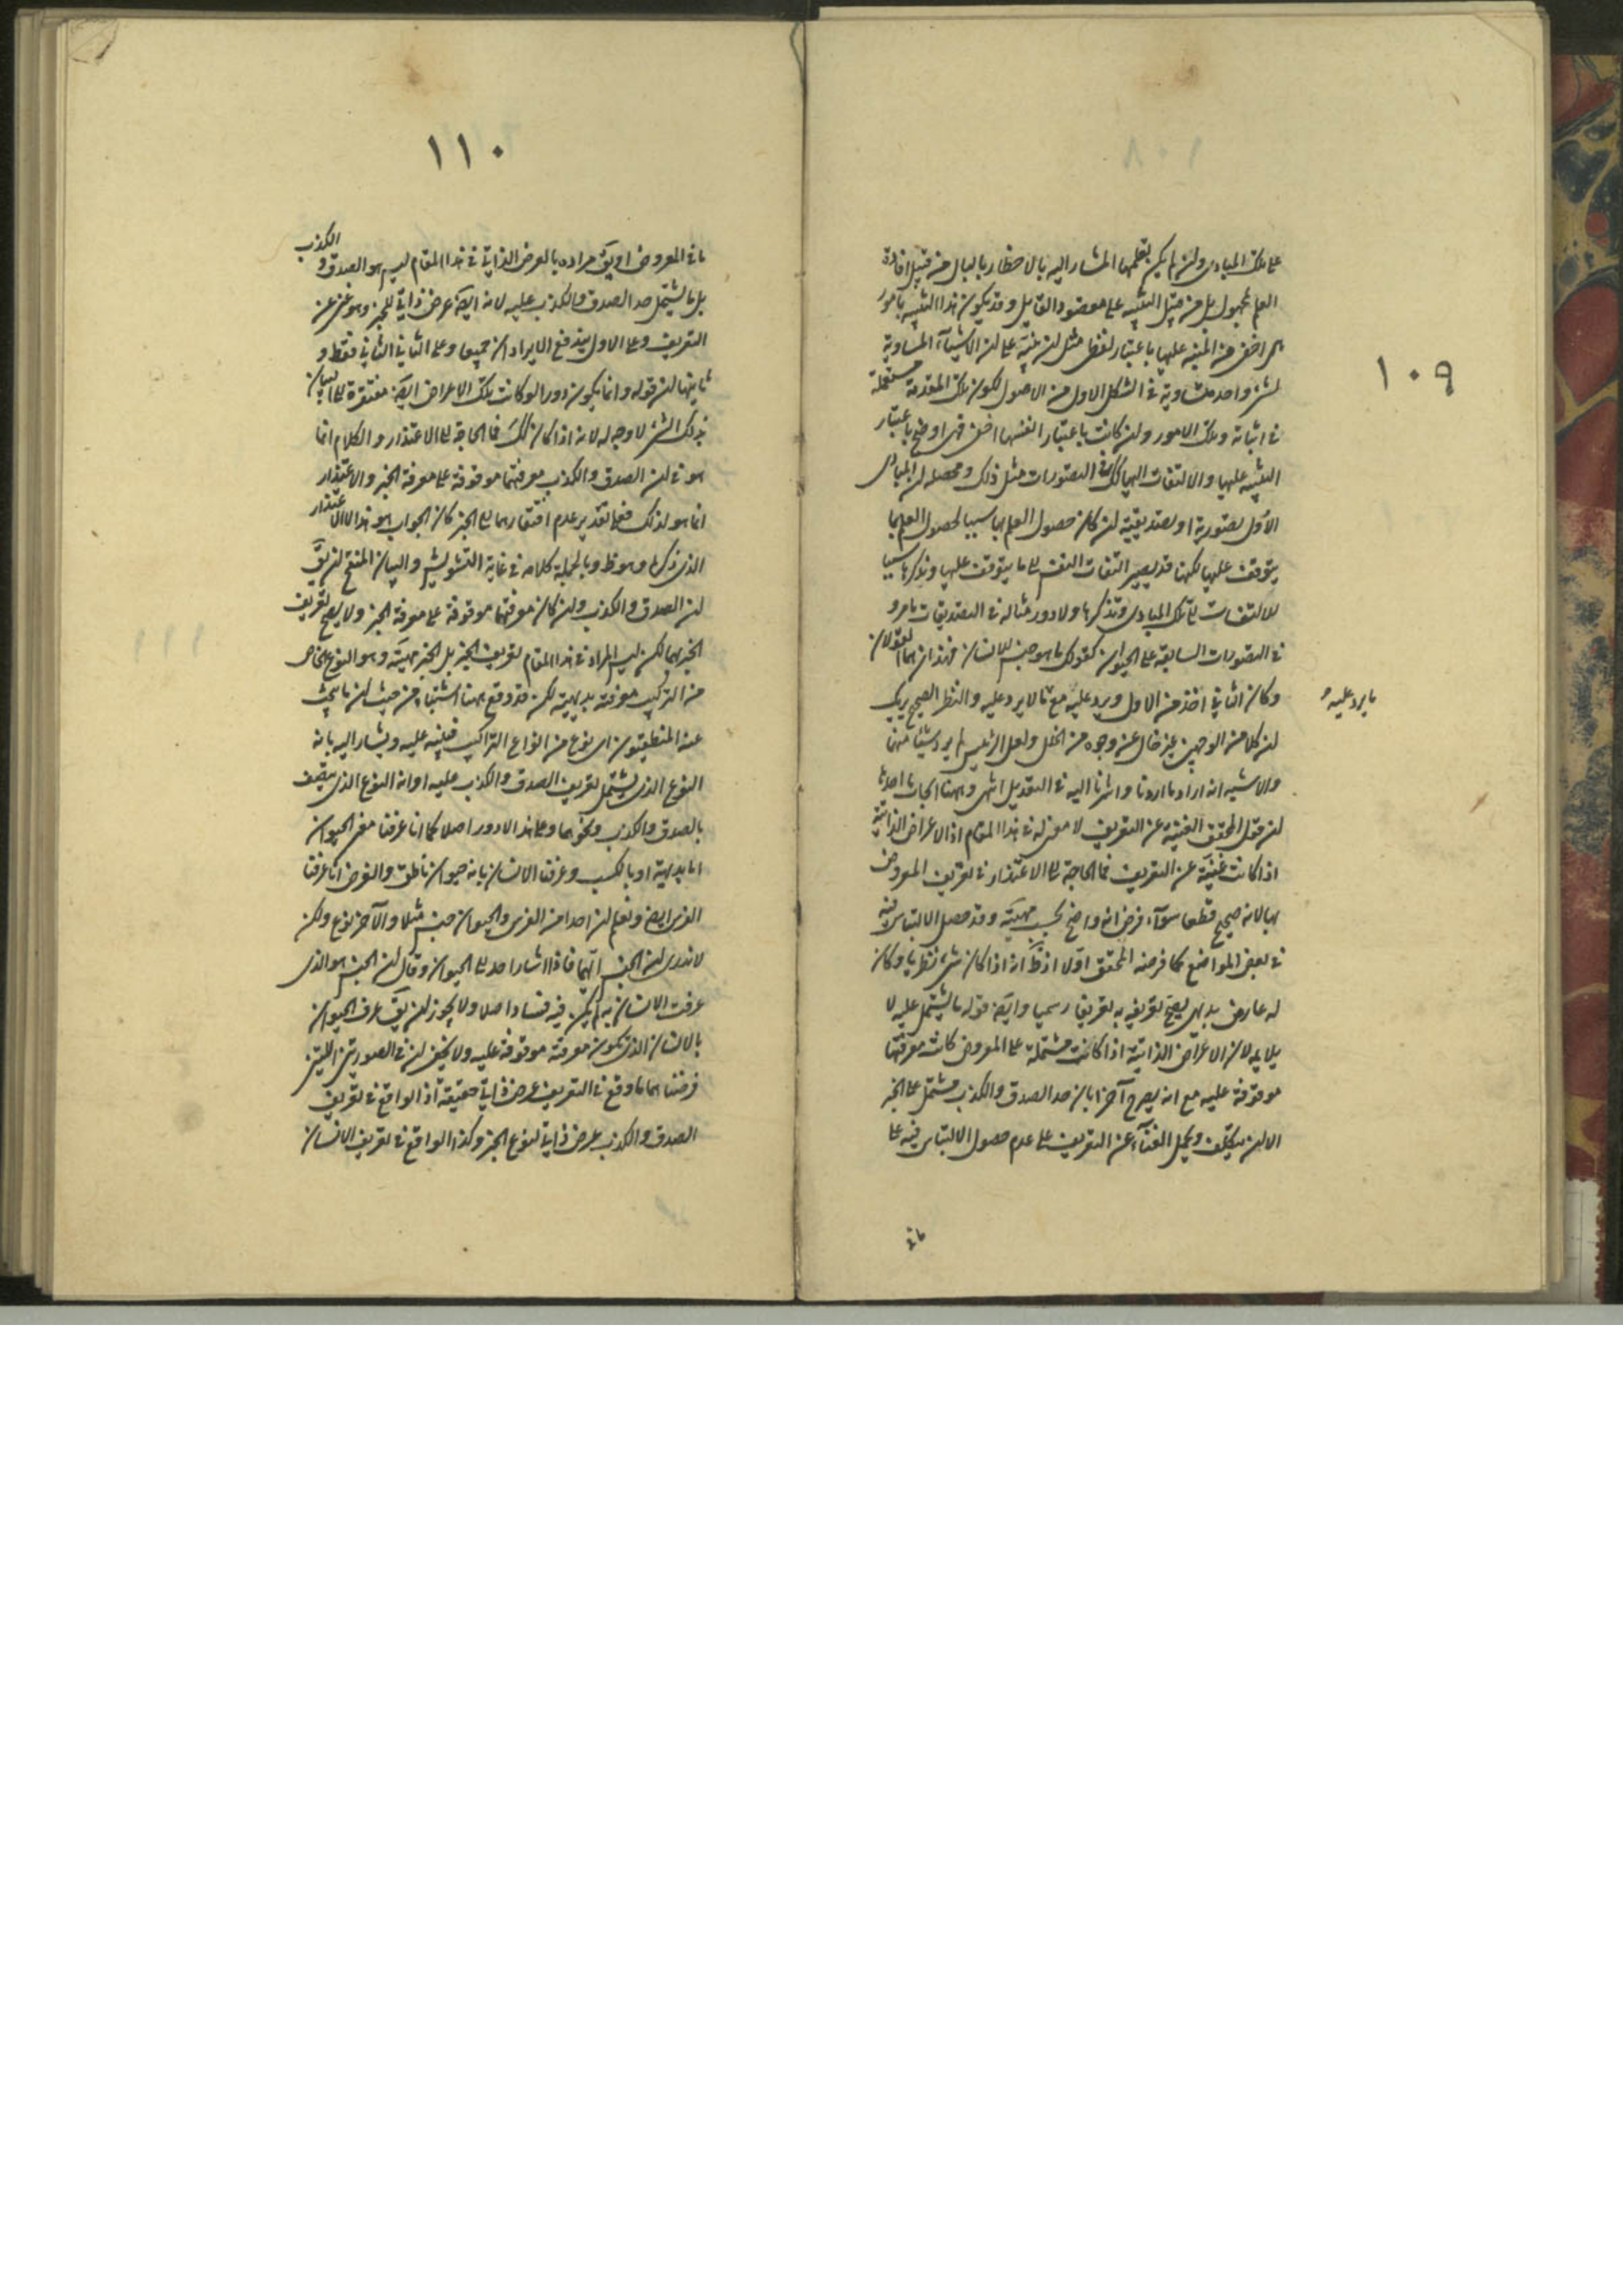 ١٠٩
على تلك المبادى وان لم يكن تعلمها المشار اليه بالاخطار بالبال من قبيل افادة
العلم بمجهول بل من قبيل التنبيه على مقصود القايل وقد يكون هذا التنبيه بامور
هى اخفى من المنبه عليها باعتبار لفظ مثل ان ينبه على ان الاشياء المساوية
لشئ واحد متساوية فى الشكل الاول من الاصول لكون تلك المقدمة مستعملة
فى اثباته وتلك الامور وان كانت باعتبار انفسها اخفى فهى اوضح باعتبار
التنبيه عليها والالتفات اليها كك فى التصورات مثل ذلك ومحصله ان المبادى
الأول تصورية او تصديقية ان كان حصول العلم بها سببا لحصول العلم بما
يتوقف عليها لكنها قد يصير التفات النفس الى ما يتوقف عليها وتذكرها سببا
للالتفات الى تلك المبادى وتذكرها ولا دور مثاله فى التصديقات ما مر و
فى التصورات السابقة على الحيوان كقولك ما هو جنس للانسان فهذان هما القولان
وكان الثانى اخذ من الاول ويرد عليه مع ما لا يرد عليه والنظر الصحيح يريك
ما يرد عليه و
ان كلا من الوجهين غير خال عن وجوه من الخلل ولعل الرئيس لم يرد شيئا منهما
والاشبه انه اراد ما اردنا واشرنا اليه فى التعديل انتهى وههنا ابحاث احدها
ان قول المحقق الغنية عن التعريف لا معنى له فى هذا المقام اذ الاعراض الذاتية
اذا كانت غنية عن التعريف فما الحاجة الى الاعتذار فى تعريف المعروض
بها لانه صحيح قطعا سواء فرض انه واضح بحسب مهيته وقد حصل الالتباس فيه
فى بعض المواضع كما فرضه المحقق اولا اذ ظ انه اذا كان شئ نظريا وكان
له عارض بديهى يصح تعريفه به تعريفا رسميا وايضا قوله ما يشتمل عليه لا
يلايمه لان الاعراض الذاتية اذا كانت مشتملة على المعروض كانت معرفتها
موقوفة عليه مع انه يصرح آخرا بان حد الصدق والكذب مشتمل على الخبر
الا ان يتكلف ويحمل الغناء عن التعريف على عدم حصول الالتباس فيه على
ما فى
١١٠
ما فى المعروض او يق مراده بالعرض الذاتى فى هذا المقام ليس هو الصدق و الكذب
بل ما يشتمل حد الصدق والكذب عليه لانه ايضا عرض ذاتى للخبر وهو غنى عن
التعريف وعلى الاول يندفع الايرادان جميعا وعلى الثانى الثانى فقط و
ثانيها ان قوله وانما يكون دورا لو كانت تلك الاعراض ايضا مفتقرة الى البيان
بذلك الشئ لا وجه له لانه اذا كان كك فما الحاجة الى الاعتذار والكلام انما
هو فى ان الصدق والكذب معرفتهما موقوفة على معرفة الخبر والاعتذار
انما هو لذلك فعلى تقدير عدم افتقارهما الى الخبر كان الجواب هو هذا لا الاعتذار
الذى ذكره وهو ظ وبالجملة كلامه فى غاية التشويش والبيان المنقح ان يق
ان الصدق والكذب وان كان معرفتهما موقوفة على معرفة الخبر ولا يصح تعريف
الخبر بهما لكن ليس المراد فى هذا المقام تعريف الخبر بل الخبر مهيته وهو النوع الخاص
من التركيب معرفته بديهية لكن قد وقع ههنا اشتباه من حيث ان ما يبحث
عنه المنطقيون اى نوع من انواع التراكيب فينبه عليه ويشار اليه بانه
النوع الذى يشتمل تعريف الصدق والكذب عليه او انه النوع الذى يتصف
بالصدق والكذب ونحوهما وعلى هذا لا دور اصلا كما انا عرفنا معنى الحيوان
اما بديهية او بالكسب وعرفنا الانسان بانه حيوان ناطق والفرض انا عرفنا
الفرس ايضا ونعلم ان احدا من الفرس والحيوان جنس مثلا والآخر نوع ولكن
لا ندرى ان الجنس ايهما فاذا اشار احد الى الحيوان وقال ان الجنس هو الذى
عرفت الانسان به لم يكن فيه فساد اصلا ولا يجوز ان يق عرف الحيوان
بالانسان الذى يكون معرفته موقوفة عليه ولا يخفى ان فى الصورتين اللتين
فرضناهما ما وقع فى التعريف عرض ذاتى حقيقة اذ الواقع فى تعريف
الصدق والكذب عرض ذاتى لنوع الخبر وكذا الواقع فى تعريف الانسان